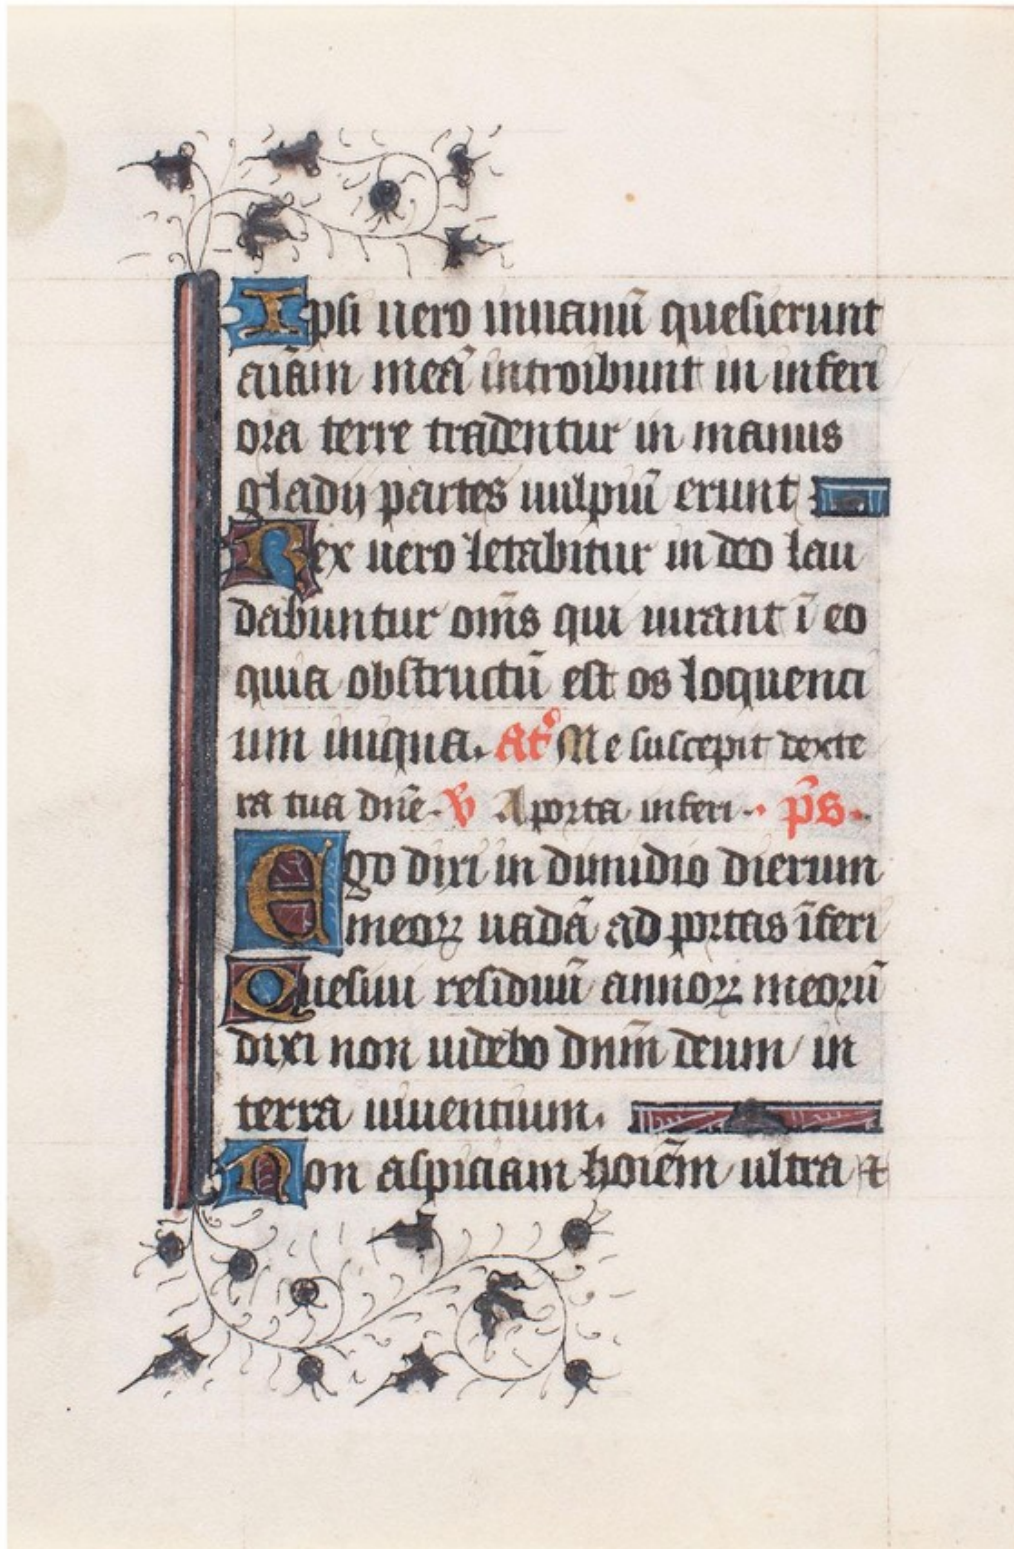 Ipsi uero inuanū quesierunt
aīam meā introibunt in inferi
ora terre tradentur in manus
gladij partes uulpiū erunt
Rex uero letabitur in deo lau
dabuntur om̄s qui iurant ī eo
quia obstructū est os loquenci
um iniqua. at̄o Me suscepit dexte
ra tua dn̄e. V A porta inferi. p̄s.
Ego dixi in dimidio dierum
meoꝝ uadā ad portas īferi
Quesiui residuū annoꝝ meorū
dixi non uidebo dn̄m deum in
terra uiuentium.
Non aspiciam hoiēm ultra ⁊